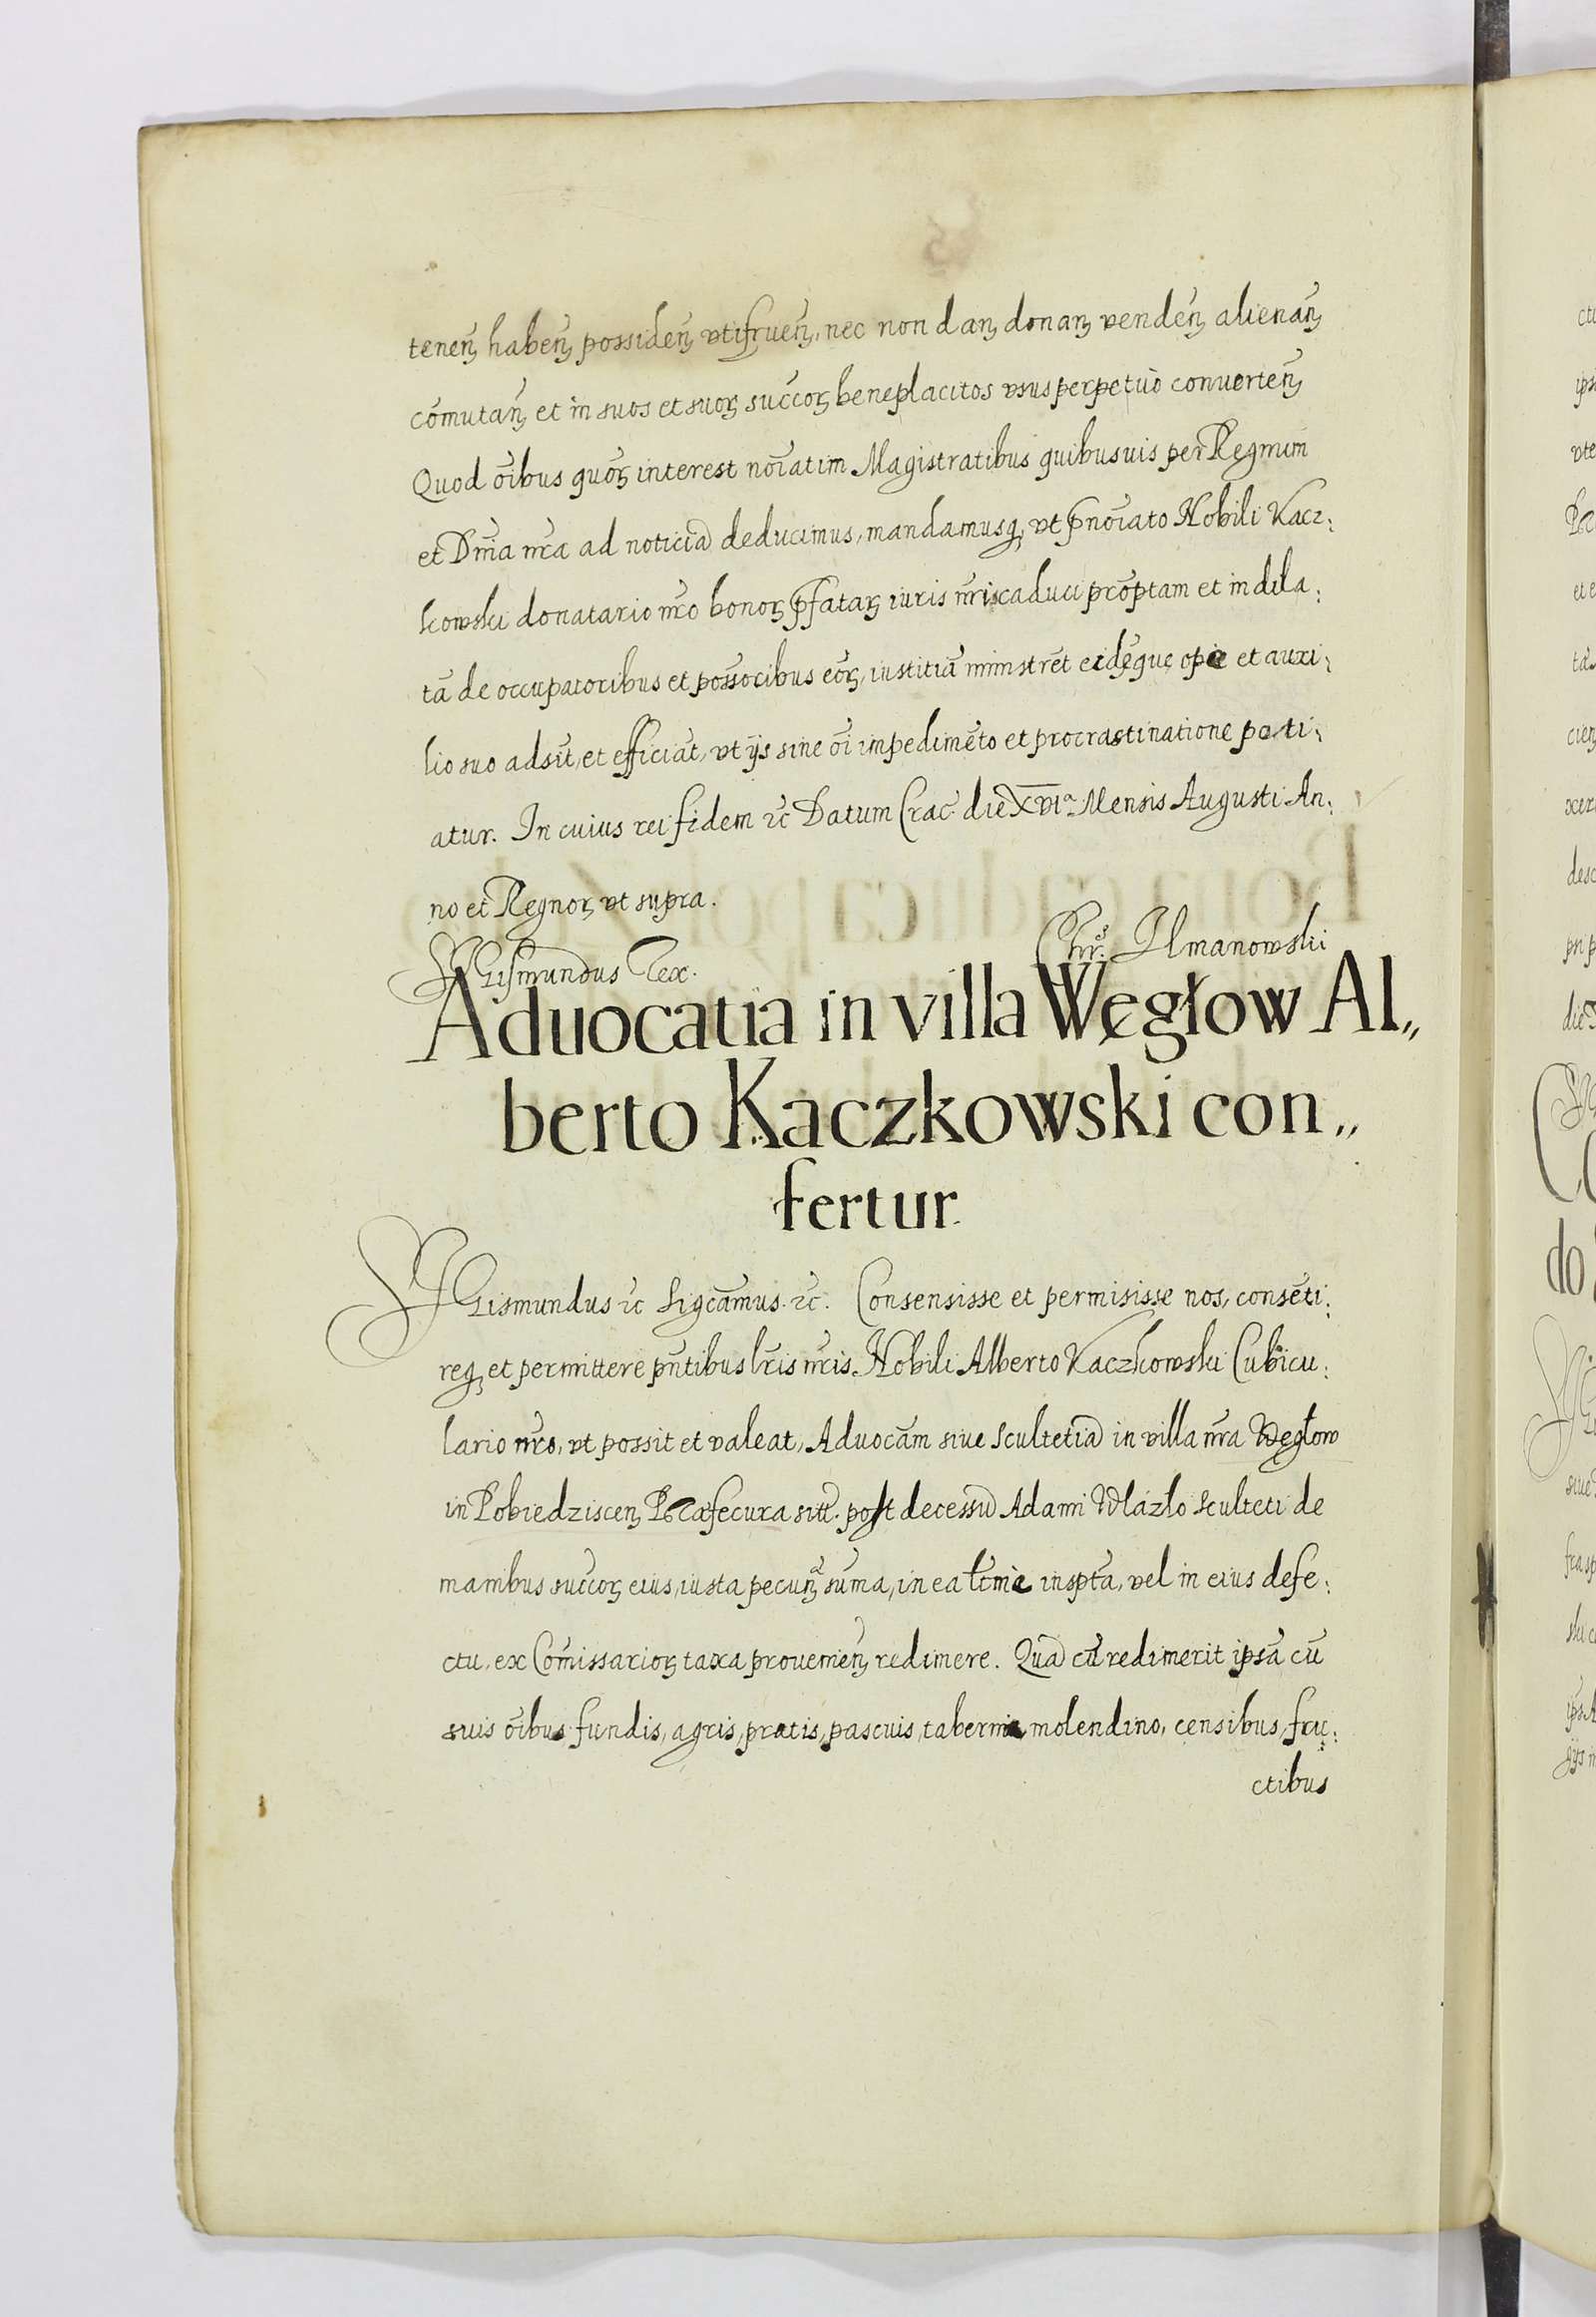 teneñ habeñ possideñ vtifrueñ, nec non dañ donañ vendeñ alienañ
cõmutañ et in suos et suoꝝ succoꝝ beneplacitos vsus perpetuò conuerteñ
Quod õibus quoꝝ interest nõiatim Magistratibus quibusuis per Regnum
et Dñia nr̃a ad noticiã deducimus, mandamusqꝫ vt p̃nõiato Nobili Kacz:
kowski donatario nr̃o bonoꝝ p̃fataꝝ iuris nr̃i caduci prõptam et in dila:
tã de occupatoribus et poss̃oribus eoꝝ, iustitiã ministrẽt eidẽque ope et auxi:
lio suo adsĩt, et efficiãt, vt ijs sine õi impedimẽto et procrastinatione poti:
atur. In cuius rei fidem ꝛc̃ Datum Crac̃. die XVIª Mensis Augusti An:
no et Regnoꝝ vt supra.
Sigismundus Rex. Chr̃s. Ilmanowski
Aduocatia in villa Węgłow Al,,
berto Kaczkowski con,,
fertur.
Sigismundus ꝛc̃ Sigcãmus. ꝛc̃. Consensisse et permisisse nos, consẽti:
reqꝫ et permittere pñtibus lr̃is nr̃is Nobili Alberto Kaczkowski Cubicu:
lario nr̃o, vt possit et valeat, Aduocãm siue Scultetiã in villa nr̃a Węgłow
in Pobiedzisceñ Præfecura sitt̃. post decessũ Adami Wlazło Sculteti de
manibus succoꝝ eius, iusta pecunª sũma, in ea ltm̃e inspt̃a, vel in eius defe:
ctu, ex Cõmissarioꝝ taxa prouenieñ redimere. Quã cũ redimerit ipsã cũ
suis õibus fundis, agris, pratis, pascuis, taberna, molendino, censibus, fru:
ctibus